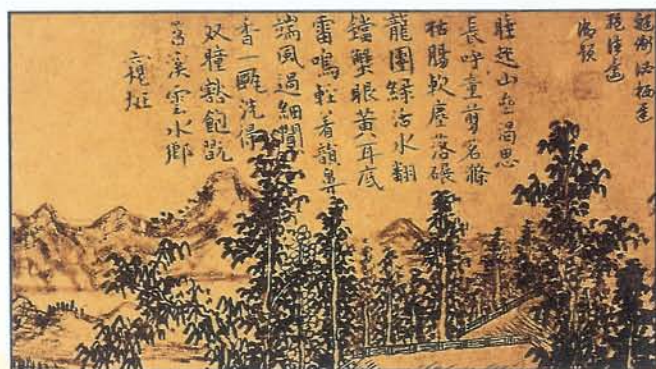 艇衡泌栖遲
絕往還
御題
睡起山齋渴思
長呼童剪茗滌
枯腸軟塵落碾
龍團綠活水翻
鐺蟹眼黃耳底
雷鳴輕着韻鼻
端風過細聞
香一甌洗得
双瞳豁飽翫
苕溪雲水鄉
窺斑